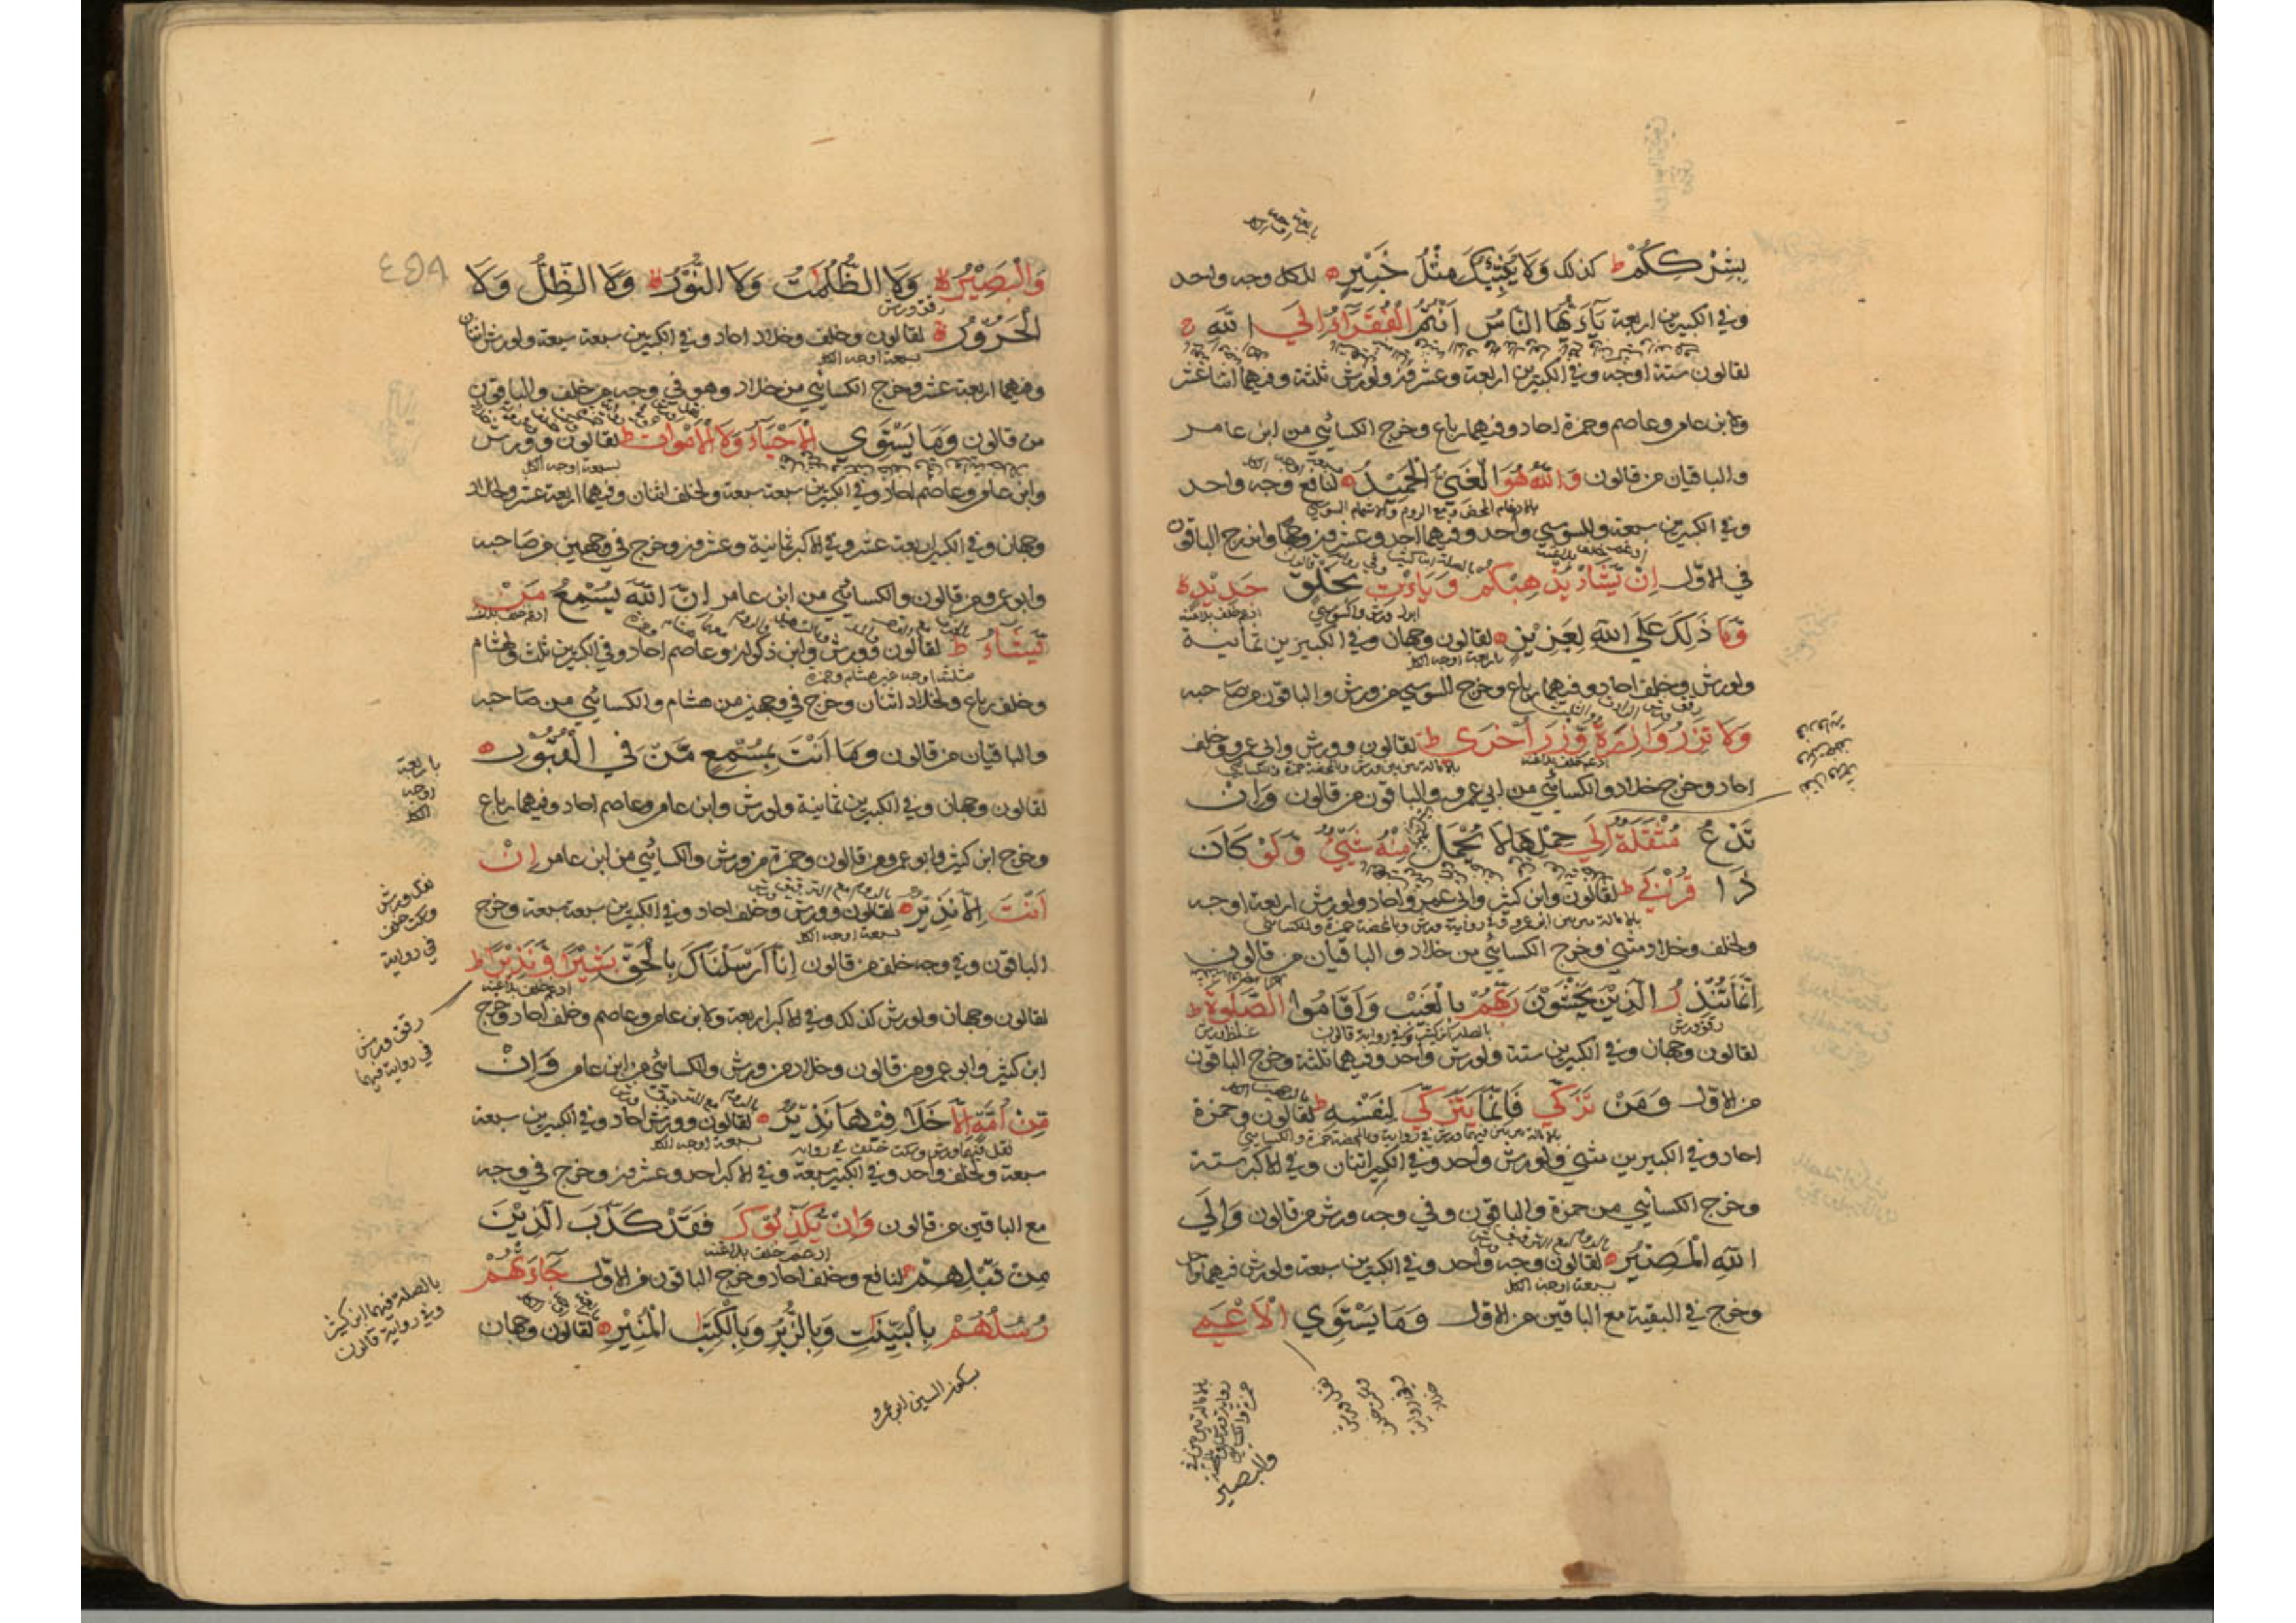 بِشِرْكِكُمْ ط كذلك وَلَا يُنَبِّئُكَ مِثْلُ خَبِيْرٍ ه للكل وجه واحد
وفي الكبيرين اربعة يَآءَيُّهَا النَّاسُ اَنْتُمُ الْفُقَرَآءُ اِلَي اللّٰهِ ج
لقالون ستة اوجه وفي الكبيرين اربعة وعشرون ولورش ثلثة وفيهما اثنا عشر
ولابن عامر وعاصم وحمزة احاد وفيهما رباع وخرج الكسائي من ابن عامر
والباقيان من قالون وَاللّٰهُ هُوَ الْغَنِيُّ الْحَمِيْدُ ه لنافع وجه واحد
بالادغام المحض ومع الروم والاشمام السوسي
وفي الكبيرين سبعة وللسوسي واحد وفيهما احد وعشرون وجها واندرج الباقون
في الاول اِنْ يَّشَأْ يُذْهِبْكُمْ وَيَاْتِ بِخَلْقٍ جَدِيْدٍ ه
ادغم خلف بلاغنة
وَّمَا ذٰلِكَ عَلَي اللّٰهِ بِعَزِيْزٍ ه لقالون وجهان وفي الكبيرين ثمانية
باربعة اوجه الكل
ولورش وخلف احاد وفيهما رباع وخرج السوسي من ورش والباقون من صاحبه
وَلَا تَزِرُ وَازِرَةٌ وِّزْرَ اُخْرٰي ط لقالون وورش وابي عمرو وخلف
ادغم خلف بلاغنة
احاد وخرج خلاد والكسائي من ابي عمرو والباقون من قالون وَاِنْ
تَدْعُ مُثْقَلَةٌ اِلَي حِمْلِهَا لَا يُحْمَلْ مِنْهُ شَيْئٌ وَّلَوْ كَانَ
ذَا قُرْبٰي ط لقالون وابن كثير وابي عمرو احاد ولورش اربعة اوجه
ولخلف وخلاد مثني وخرج الكسائي من خلاد والباقيان من قالون
اِنَّمَا تُنْذِرُ الَّذِيْنَ يَخْشَوْنَ رَبَّهُمْ بِالْغَيْبِ وَاَقَامُوا الصَّلٰوةَ ط
رقق ورش بالصلة ابن كثير وفي رواية قالون غلظ ورش
لقالون وجهان وفي الكبيرين ستة ولورش واحد وفيهما ثلثة وخرج الباقون
من الاول وَمَنْ تَزَكّٰي فَاِنَّمَا يَتَزَكّٰي لِنَفْسِهٖ ط لقالون وحمزة
احاد وفي الكبيرين مثني ولورش واحد وفي الكبير اثنان وفي الاكبر ستة
وخرج الكسائي من حمزة والباقون وفي وجه ورش من قالون وَاِلَي
اللّٰهِ الْمَصِيْرُ ه لقالون وجه واحد وفي الكبيرين سبعة ولورش فيهما واحد
بسبعة اوجه الكل
وخرج في البقية مع الباقين من الاول وَمَا يَسْتَوِي الْاَعْمٰي
والبصير
٤٥٨
وَالْبَصِيْرُ ه وَلَا الظُّلُمٰتُ وَلَا النُّوْرُ ه وَلَا الظِّلُّ وَلَا
رقق ورش
الْحَرُوْرُ ه لقالون وخلف وخلاد احاد وفي الكبيرين سبعة سبعة ولورش اثنان
بسبعة اوجه الكل
وفيهما اربعة عشر وخرج الكسائي من خلاد وهو في وجه من خلف والباقون
من قالون وَمَا يَسْتَوِي الْاَحْيَآءُ وَلَا الْاَمْوَاتُ ط لقالون وورش
بسبعة اوجه الكل
وابن عامر وعاصم احاد وفي الكبيرين سبعة سبعة ولخلف اثنان وفيهما اربعة عشر ولخلاد
وجهان وفي الكبير اربعة عشر وفي الاكبر ثمانية وعشرون وخرج في وجهين من صاحبه
وابو عمرو من قالون والكسائي من ابن عامر اِنَّ اللّٰهَ يُسْمِعُ مَنْ
ادغم خلف بلاغنة
يَّشَآءُ ط لقالون وورش وابن ذكوان وعاصم احاد وفي الكبيرين ثلث ولهشام
بثلثة اوجه غير هشام وحمزة
وخلف رباع ولخلاد اثنان وخرج في وجهين من هشام والكسائي من صاحبه
والباقيان من قالون وَمَا اَنْتَ بِمُسْمِعٍ مَّنْ فِي الْقُبُوْرِ ه
باربعة اوجه الكل
لقالون وجهان وفي الكبيرين ثمانية ولورش وابن عامر وعاصم احاد وفيهما رباع
وخرج ابن كثير وابو عمرو من قالون وحمزة من ورش والكسائي من ابن عامر اِنْ
اَنْتَ اِلَّا نَذِيْرٌ ه لقالون وورش وخلف احاد وفي الكبيرين سبعة سبعة وخرج
نقل ورش وسكت خلف في رواية
بسبعة اوجه الكل
الباقون وفي وجه خلف من قالون اِنَّا اَرْسَلْنَاكَ بِالْحَقِّ بَشِيْرًا وَّنَذِيْرًا ط
ادغم خلف بلاغنة
رقق ورش في رواية فيهما
لقالون وجهان ولورش كذلك وفي الاكبر اربعة ولابن عامر وعاصم وخلف احاد وخرج
ابن كثير وابو عمرو من قالون وخلاد من ورش والكسائي من ابن عامر وَاِنْ
مِّنْ اُمَّةٍ اِلَّا خَلَا فِيْهَا نَذِيْرٌ ه لقالون وورش احاد وفي الكبيرين سبعة
نقل فيهما ورش وسكت خلف في رواية بسبعة اوجه الكل
سبعة ولخلف واحد وفي الكبير سبعة وفي الاكبر احد وعشرون وخرج في وجه
مع الباقين من قالون وَاِنْ يُّكَذِّبُوْكَ فَقَدْ كَذَّبَ الَّذِيْنَ
ادغم خلف بلاغنة
مِنْ قَبْلِهِمْ ج لنافع وخلف احاد وخرج الباقون من الاول جَآءَتْهُمْ
بالصلة فيهما ابن كثير وفي رواية قالون
رُسُلُهُمْ بِالْبَيِّنٰتِ وَبِالزُّبُرِ وَبِالْكِتٰبِ الْمُنِيْرِ ه لقالون وجهان
بسكون السين ابو عمرو